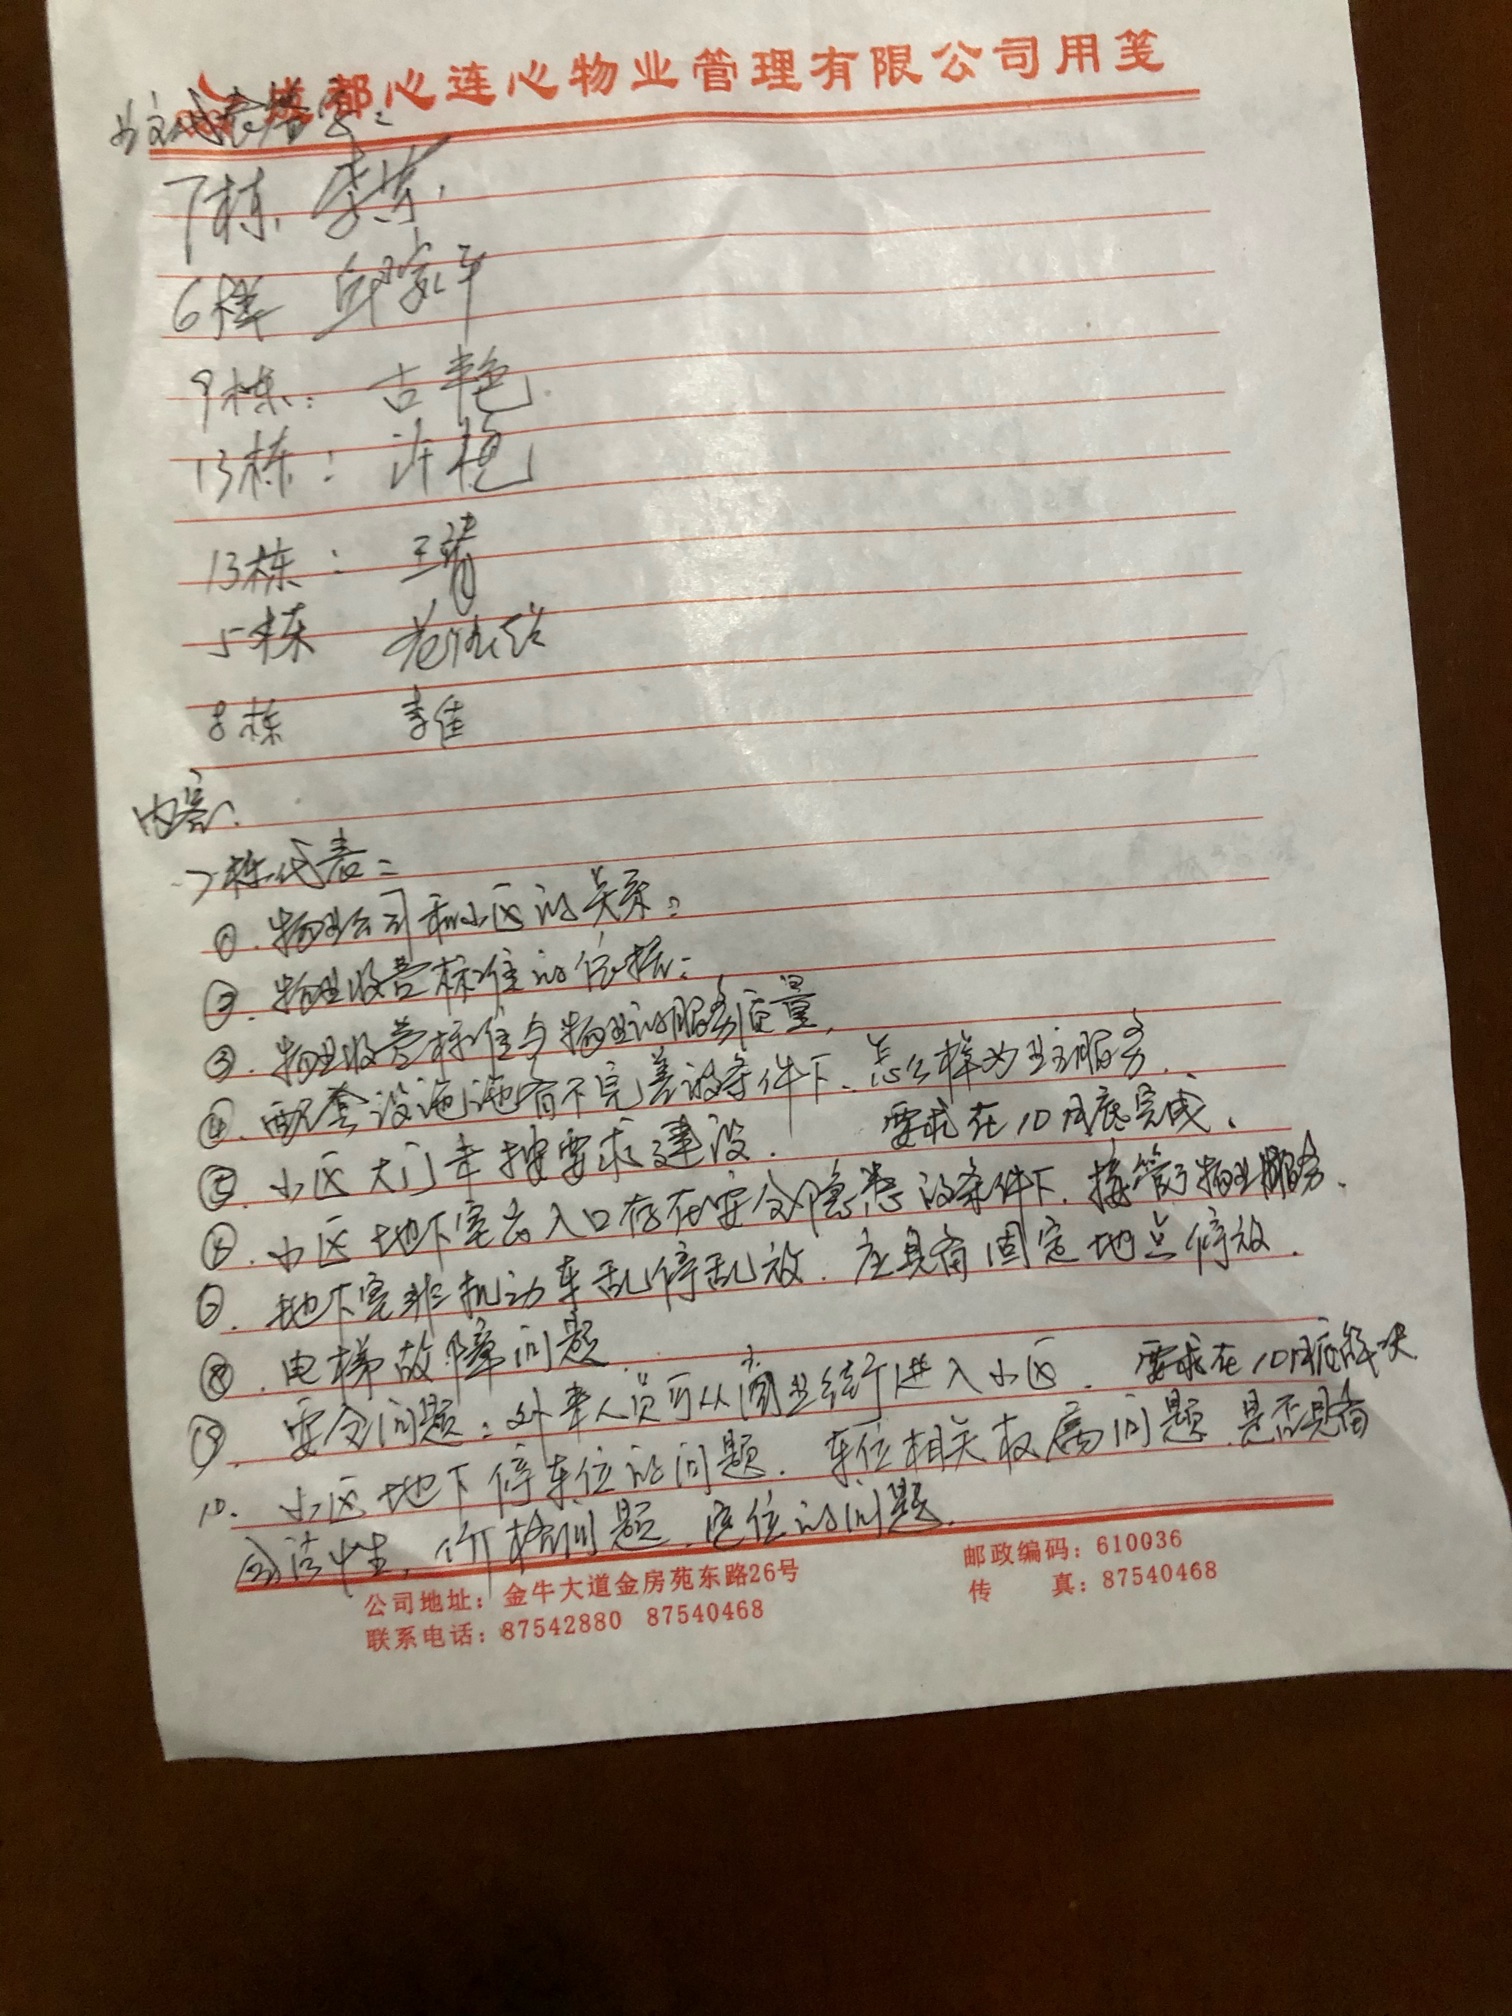 成都心连心物业管理有限公司用笺
业主代表签字：
7栋
6栋 邱家平
9栋：古艳
13栋：许艳
13栋：王靖
5栋
8栋 李佳
内容：
7栋代表：
①.物业公司和小区的关系：
②.物业收费标准的依据：
③.物业收费标准与物业的服务质量.
④.配套设施设备不完善的条件下、怎么样为业主服务.
⑤.小区大门未按要求建设. 要求在10月底完成.
⑥.小区地下室出入口存在安全隐患的条件下.接管了物业服务.
⑦.地下室非机动车乱停乱放.应具备固定地点停放.
⑧.电梯故障问题.
⑨.安全问题：外来人员可从商业街进入小区. 要求在10月底解决
10.小区地下停车位的问题.车位相关权属问题.是否具备
合法性，价格问题.定位的问题.
公司地址：金牛大道金房苑东路26号 邮政编码：610036
联系电话：87542880 87540468 传 真：87540468